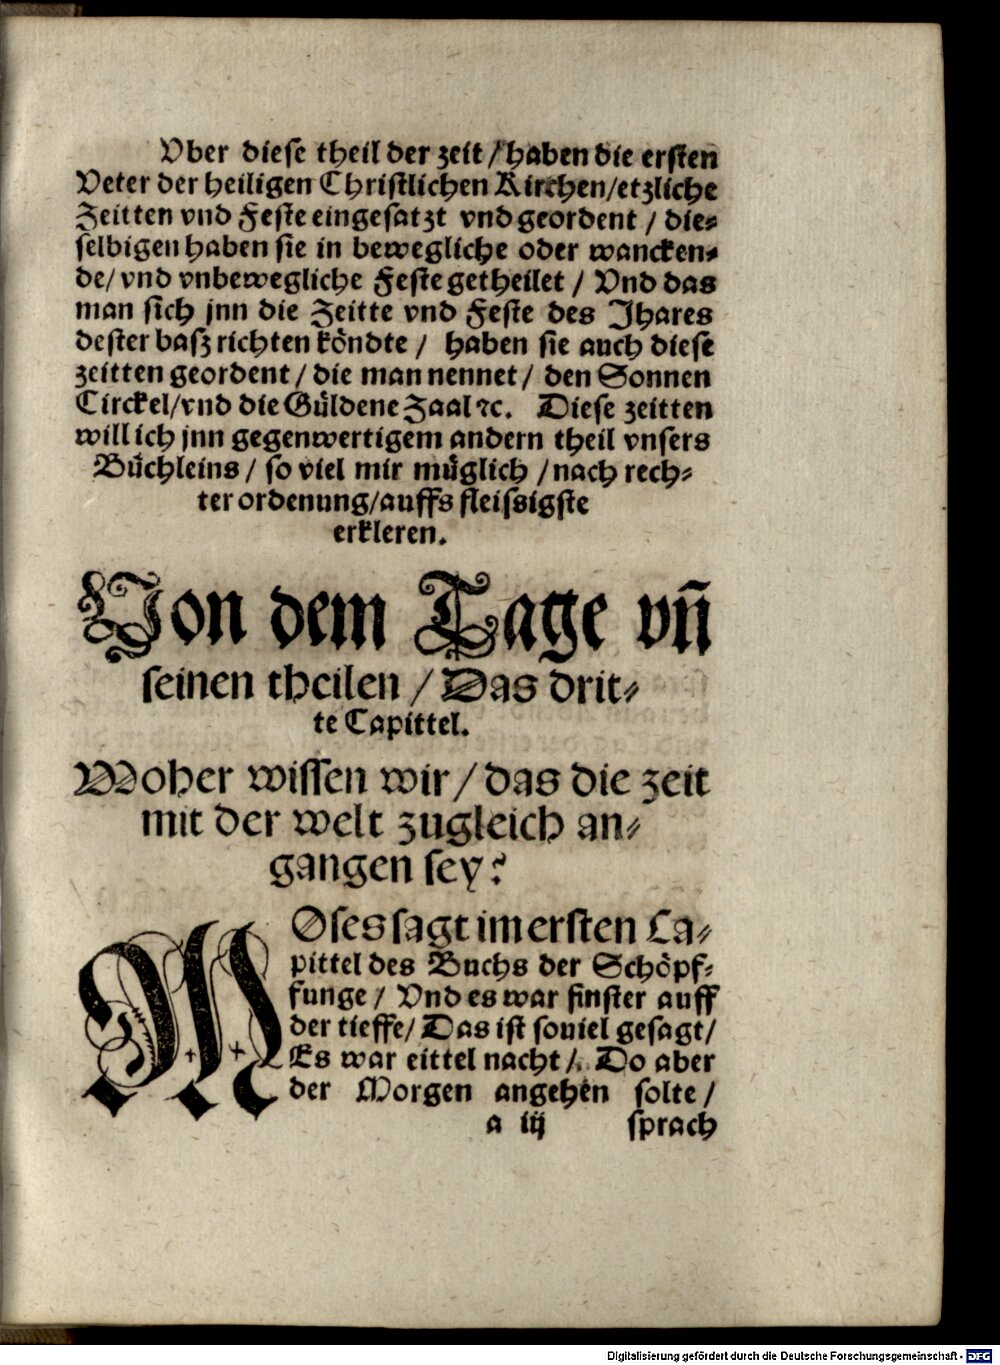 Vber diese theil der zeit / haben die ersten
Veter der heiligen Christlichen Kirchen/etzliche
Zeitten vnd Feste eingesatzt vnd geordent / die⸗
selbigen haben sie in bewegliche oder wancken⸗
de/ vnd vnbewegliche Feste getheilet / Vnd das
man sich jnn die Zeitte vnd Feste des Jhares
dester basz richten köndte / haben sie auch diese
zeitten geordent / die man nennet / den Sonnen
Circkel/vnd die Güldene Zaal ⁊c. Diese zeitten
will ich jnn gegenwertigem andern theil vnsers
Büchleins / so viel mir müglich / nach rech⸗
ter ordenung/auffs fleissigste
erkleren.
Von dem Tage vñ
seinen theilen / Das drit⸗
te Capittel.
Woher wissen wir / das die zeit
mit der welt zugleich an⸗
gangen sey?
MOses sagt im ersten Ca⸗
pittel des Buchs der Schöpf⸗
funge / Vnd es war finster auff
der tieffe/ Das ist souiel gesagt/
Es war eittel nacht /. Do aber
der Morgen angehen solte /
a iij sprach
Digitalisierung gefördert durch die Deutsche Forschungsgemeinschaft - DFG